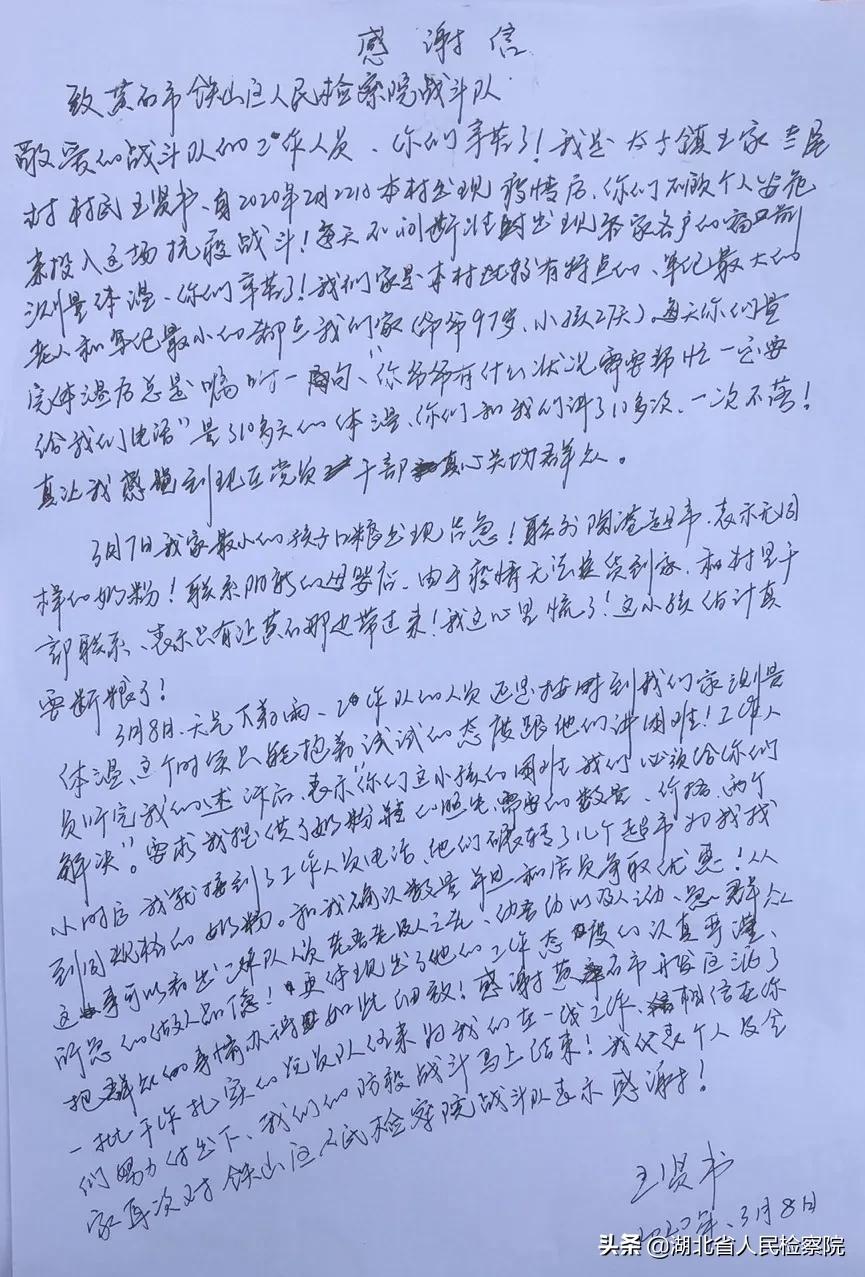 感谢信
致黄石市铁山区人民检察院战斗队
敬爱的战斗队的工作人员、你们辛苦了!我是太子镇王家
村村民王贤书、自2020年2月22日本村出现疫情后、你们不顾个人安危
来投入这场抗疫战斗!每天不间断准时出现各家各户的窗口前
测量体温、你们辛苦了!我们家是本村比较有特点的、年纪最大的
老人和年纪最小的都在我们家(爷爷97岁、小孩27天)每天你们量
完体温后总是嘱咐一句、“你爷爷有什么状况需要帮忙一定要
给我们电话”量了10多天的体温、你们和我们讲了10多次、一次不落!
真让我感觉到现在党员干部真心关切群众。
3月7日我家最小的孩子口粮出现告急!联系陶港超市、表示无同
样的奶粉!联系阳新的母婴店、由于疫情无法送货到家、和村里干
部联系、表示只有让黄石那边带过来!我这心里慌了!这小孩估计真
要断粮了!
3月8日、天气下着雨、工作队的人员还是按时到我们家测量
体温、这个时候只能抱着试试的态度跟他们讲困难!工作人
员听完我们的述说后、表示“你们这小孩的困难我们必须给你们
解决”。要求我提供了奶粉的照片、需要的数量、价格、两个
小时后我就接到了工作人员电话、他们辗转了几个超市为我找
到同规格的奶粉。和我确认数量并且和店员争取优惠!从
这事可以看出工作队人员老吾老及人之老、幼吾幼以及人之幼、急群众
所急的做人品德!更体现出了他们工作态度的认真严谨、
把群众的事情办得如此细致!感谢黄石市开发区派了
一批干作扎实的党员队伍来为我们在一线工作、相信在你
们努力付出下、我们的防疫战斗马上结束!我代表个人及全
家再次对铁山区人民检察院战斗队表示感谢!
王贤书
2020年、3月8日
头条 @湖北省人民检察院